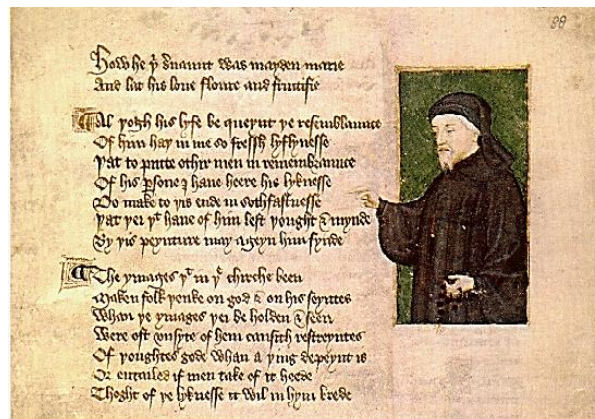 88
How he þi seruaunt was mayden marie
And lat his loue floure and fructifie
Al þogh his lyfe be queynt þe resemblaunce
Of him haþ in me so fressh lyflynesse
Þat to putte othir men in remembraunce
Of his ꝑsone I haue heere his lyknesse
Do make to þis ende in sothfastnesse
Þat þei þt haue of him left þought & mynde
By þis peynture may ageyn him fynde
The ymages þt in þe chirche been
Maken folk þenke on god & on his seyntes
Whan þe ymages þei be holden & seen
Were oft vnsyte of hem causith restreyntes
Of þoughtes gode whan a þing depeynt is
Or entailed if men take of it heede
Thoght of þe lyknesse it wil in hym brede